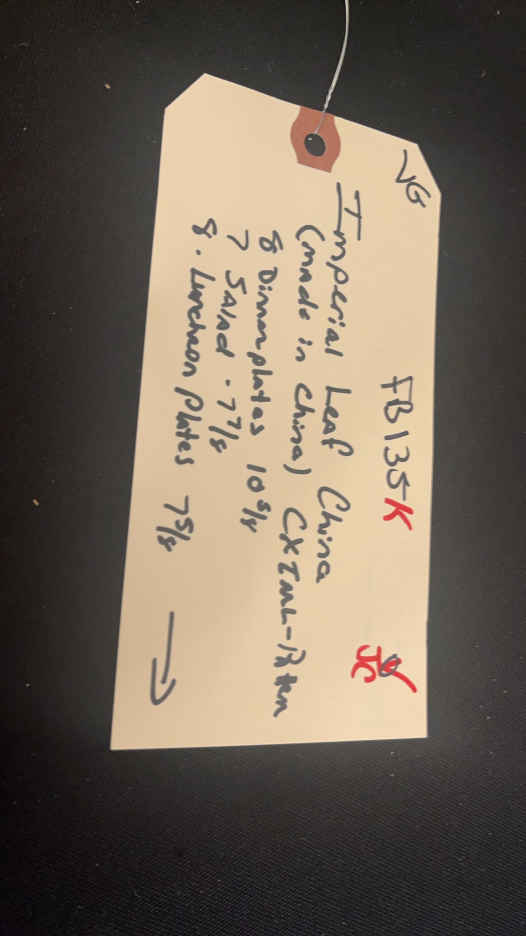 VG
FB135K
JC
Imperial Leaf China
(made in China) CXIML-Pattern
8 Dinnerplates 10 5/8
7 Salad - 7 7/8
8. Luncheon plates 7 5/8
→